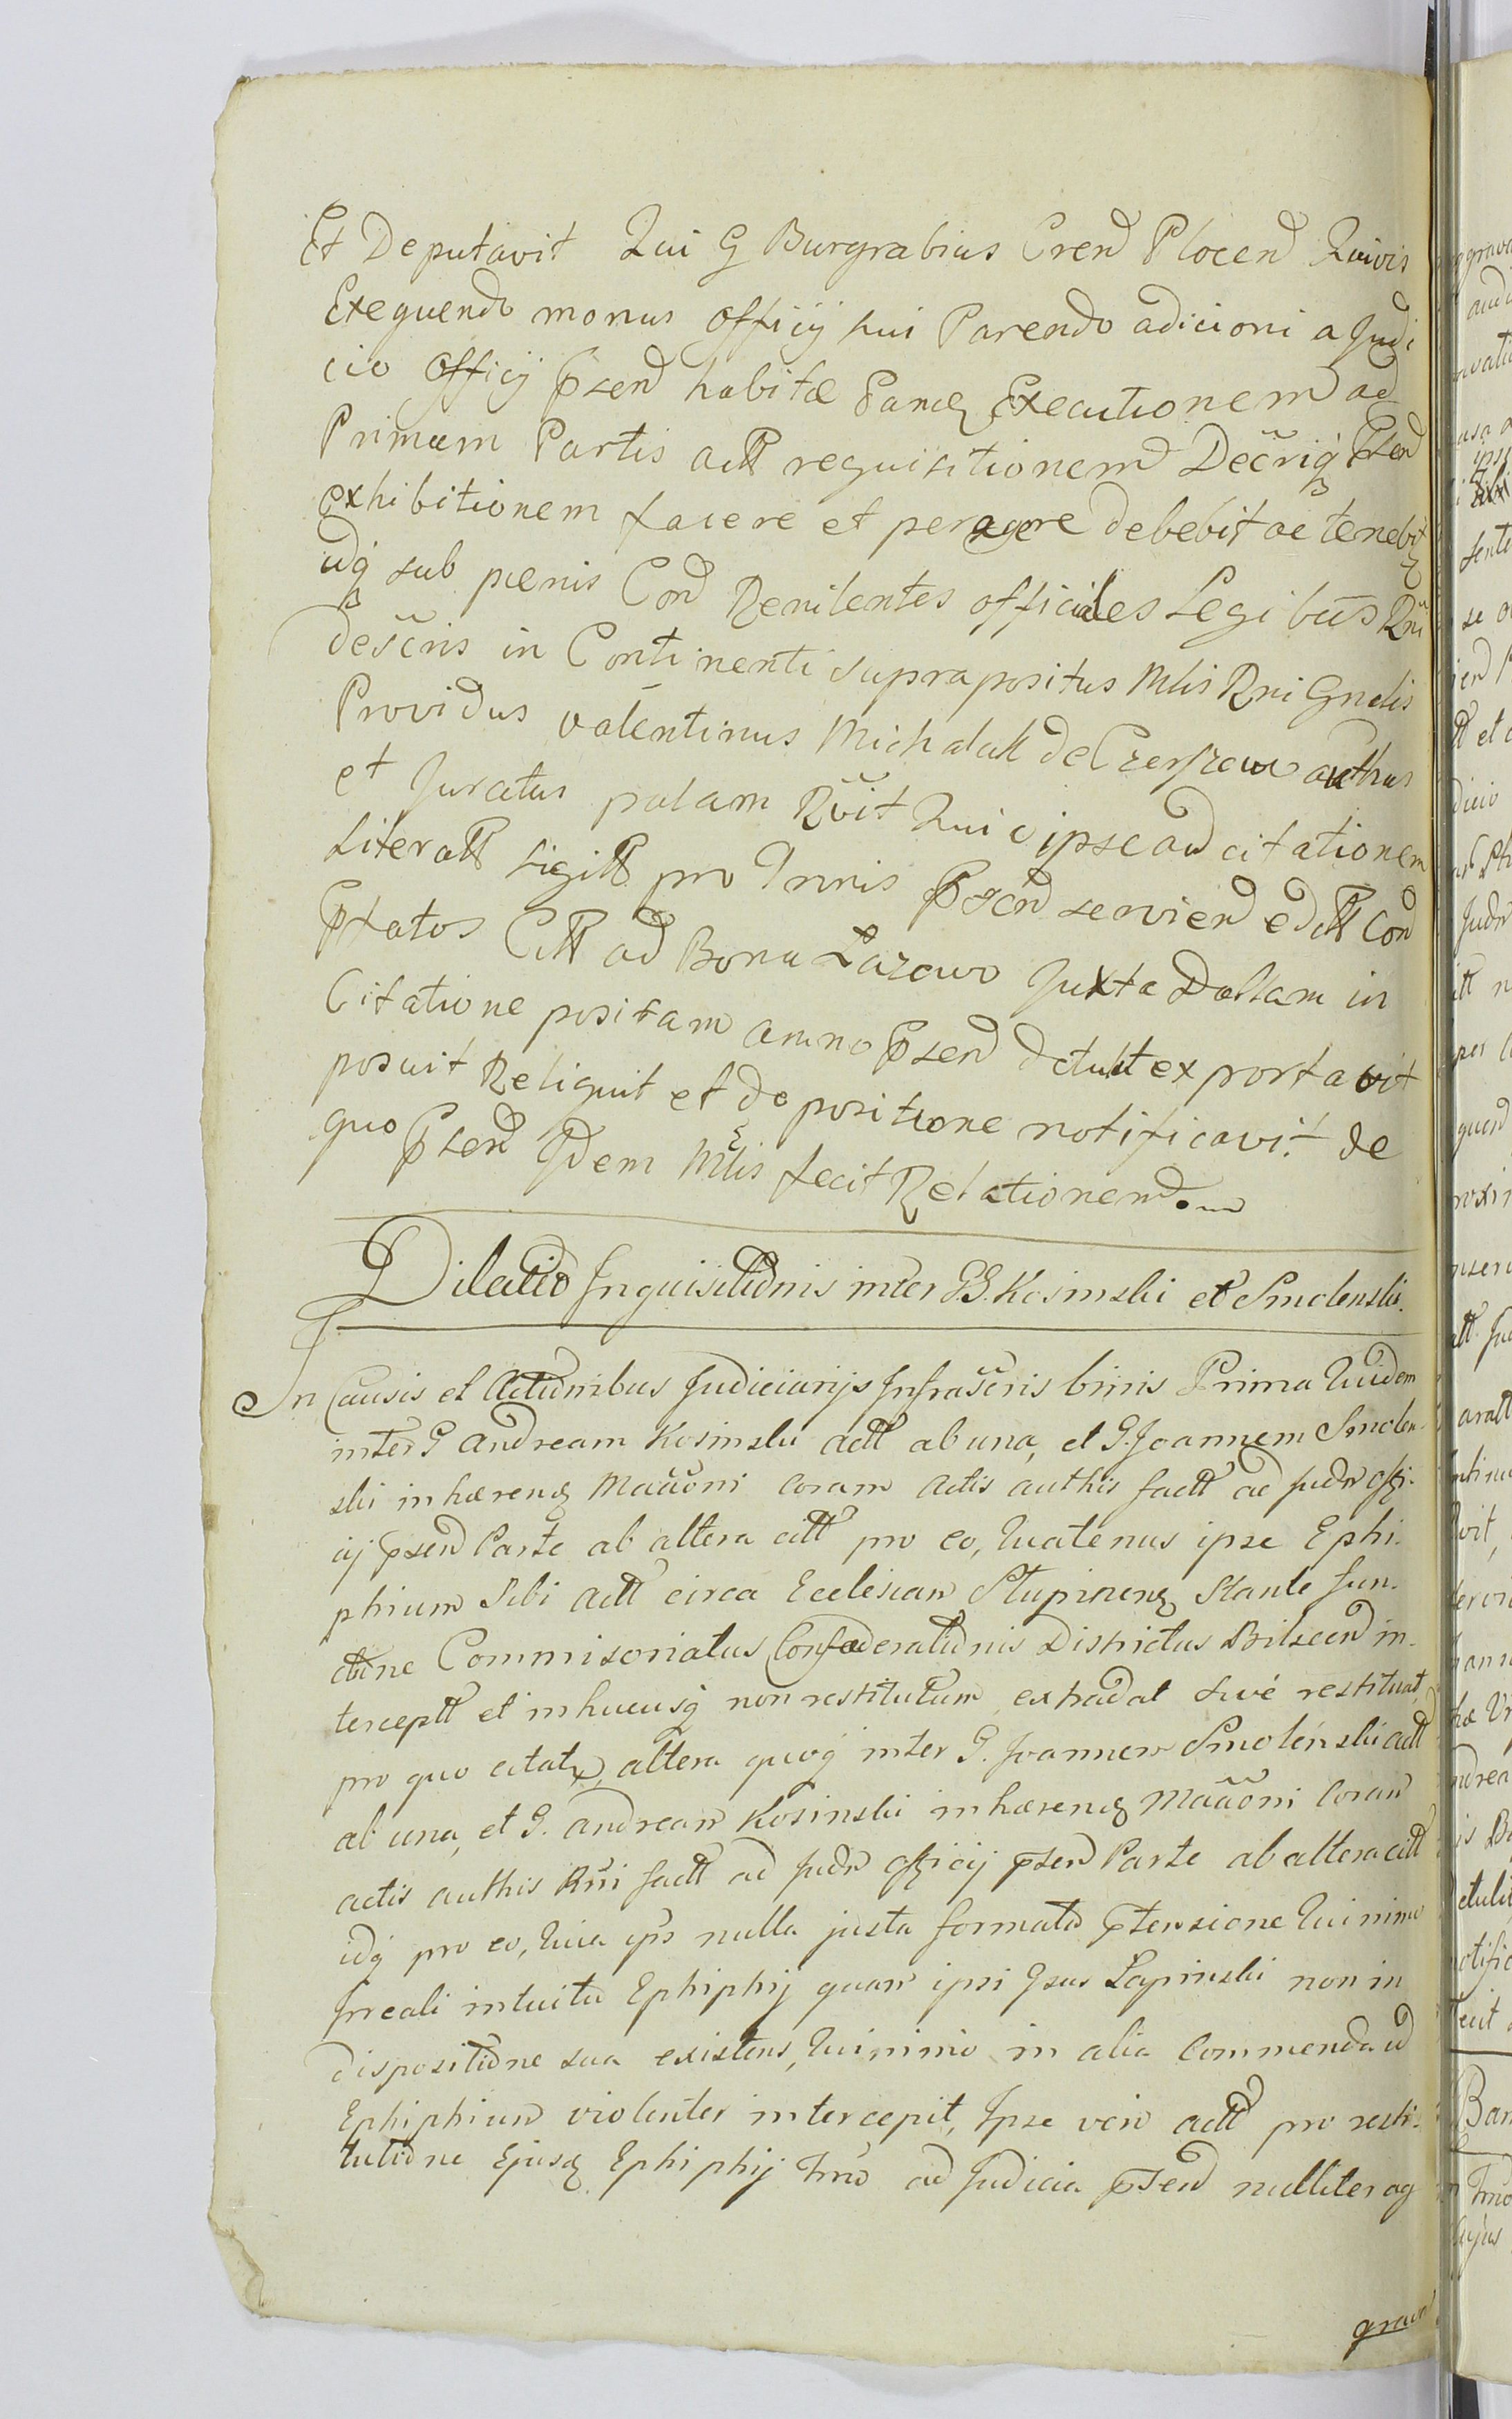 Et Deputavit Qui G Burgrabius Cren Plocen Quivis
Exequendo monus officij sui Parendo adicioni a Judi
cio Officij Psen habitæ Panę Executionem ad
Primam Partis actt requisitionem Decriq Psen
exhibitionem facere et peragere debebit ac tenebit
idq sub pænis Con Renitentes officiales Legibus Rni
descris in Continenti suprapositus Mlis Rni Gnelis
Providus Valentinus Michalak de authus
et Juratus palam Rvit Qui ipse ad citationem
Literatt Sigitt pro Tnnis Psen servien editt Con
Ptatos Citt ad Bona Lazowo Juxta Dattam in
Citatione positam anno Psen detulit exportavit
posuit Reliquit et de positione notificavit de
quo Psen Idem Mlis fecit Relationem.
Dilatio Inquisitionis inter G.G. Kosinski et Smolenski.
In Causis et Actionibus Judiciarijs Infrascris binis Prima Quidem
inter G Andream Kosinski actt ab una, et G. Joannem Smolen-
ski inhærenę Maãoni coram Actis authis factt ad Judm offi-
cij psen Parte ab altera citt pro eo, Quatenus ipse Ephi-
phium Sibi actt circa Ecclesiam Stupinenę Stante fun-
ctione Commisoriatus Confæderationis Districtus Bilscen in-
terceptt et inhucusq non restitutum extradat sivé restituat,
pro quo citatr, altera quoq inter G. Joannem Smolénski actt
ab una, et G. Andream Kosinski inhærenę Maãoni coram
actis authis Rni factt ad Judm officij psen Parte ab altera citt
idq pro eo, Quia ips nulla justa formata ptensione Quinimo
Irreali intuitu Ephiphij quam ipsi Gsus Lapinski non in
dispositione sua existens, Quinimo in alia commenda id
Ephiphium violenter intercepit, Ipse vero actt pro resti-
tutione Ejusę Ephiphij Tnno ad Judicia psen nulliter ag
grava